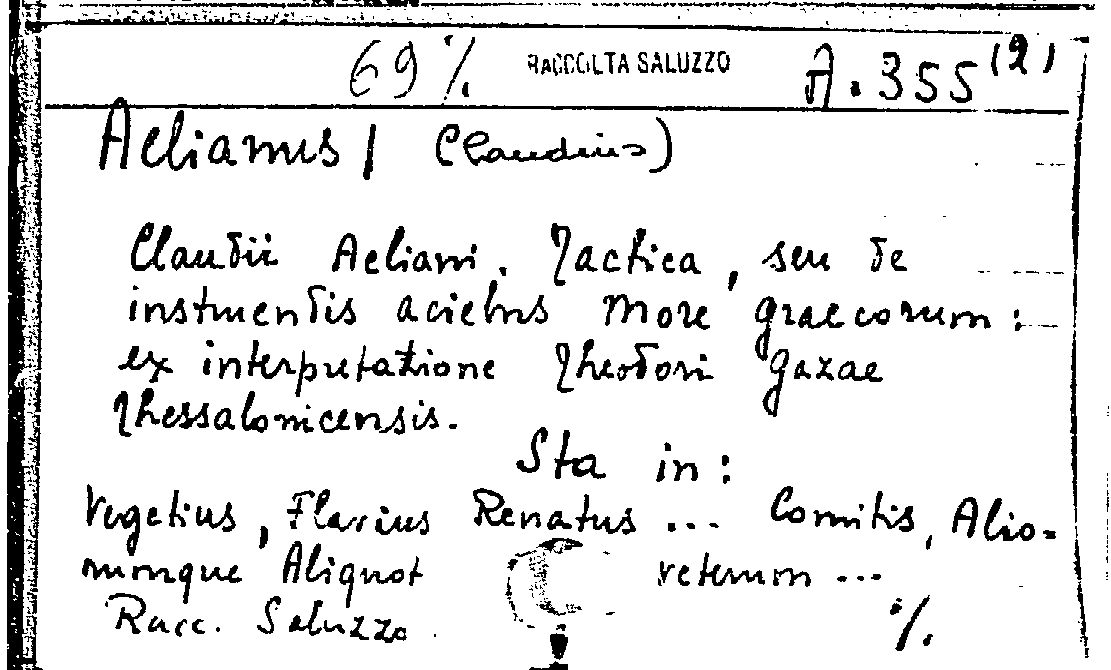 69 % RACCOLTA SALUZZO A.355(2)
Aelianus / (Claudius)
Claudii Aeliani. Tactica, seu de
instruendis aciebus more graecorum:
ex interpretatione Theodori Gazae
Thessalonicensis.
Sta in:
Vegetius, Flavius Renatus ... Comitis, Alio-
rumque Aliquot veterum ...
Racc. Saluzzo. %.